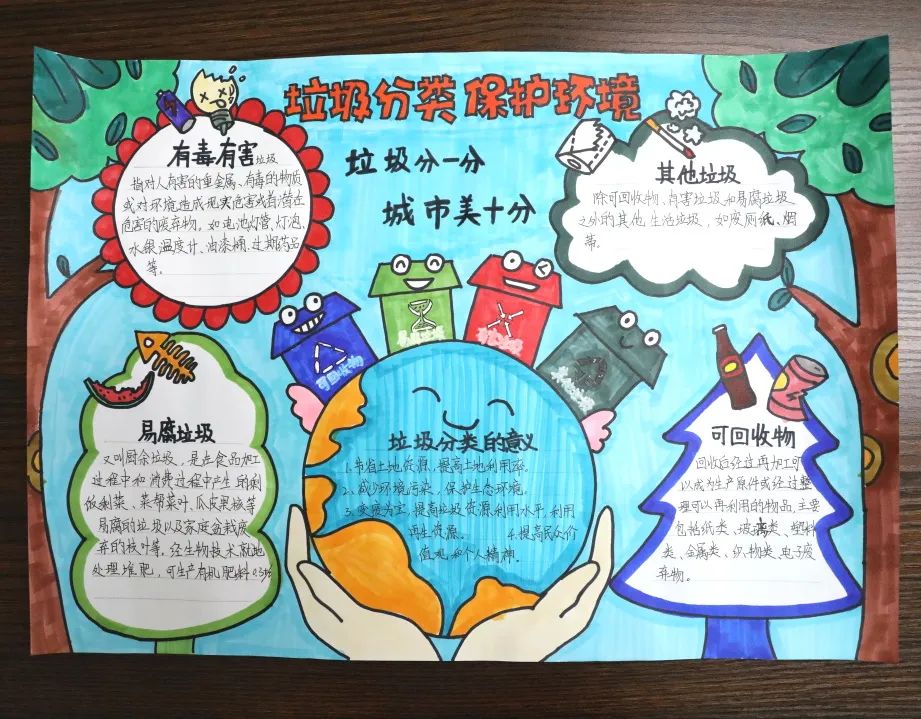 垃圾分类 保护环境
垃圾分一分
城市美十分
有毒有害垃圾
指对人有害的重金属、有毒的物质
或对环境造成现实危害或者潜在
危害的废弃物，如电池灯管、灯泡、
水银温度计、油漆桶、过期药品
等。
其他垃圾
除可回收物、有害垃圾和易腐垃圾
之外的其他生活垃圾，如废厕纸、烟
蒂。
可回收物
易腐垃圾
又叫厨余垃圾，是在食品加工
过程中和消费过程中产生的剩
饭剩菜、菜帮菜叶、瓜皮果核等
易腐的垃圾以及家庭盆栽废
弃的枝叶等，经生物技术就地
处理堆肥，可生产有机肥料0.3吨
垃圾分类的意义
1.节省土地资源，提高土地利用率。
2.减少环境污染，保护生态环境。
3.变废为宝，提高垃圾资源利用水平，利用
再生资源。 4.提高民众价
值观和个人精神。
可回收物
回收后经过再加工可
以成为生产原件或经过整
理可以再利用的物品，主要
包括纸类、玻离类、塑料
类、金属类、织物类、电子废
弃物。